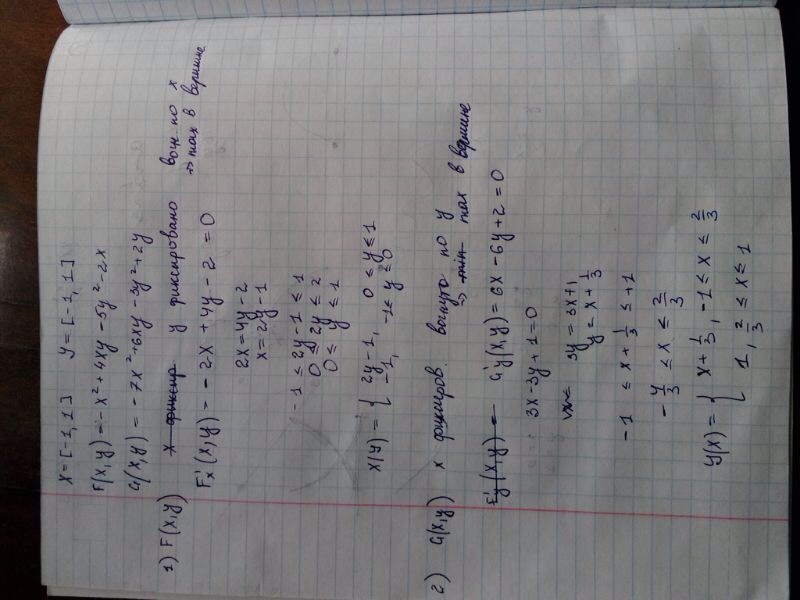 X=[-1,1] Y=[-1,1]
F(x,y)=-x²+4xy-5y²-2x
G(x,y)=-7x²+6xy-3y²+2y
1) F(x,y) x фиксир y фиксировано вогн. по x
⇒ max в вершине
Fx'(x,y)=-2x+4y-2=0
2x=4y-2
x=2y-1
-1≤2y-1≤1
0≤2y≤2
0≤y≤1
x(y)={2y-1, 0≤y≤1
-1, -1≤y≤0
2) G(x,y) x фиксиров. вогнуто по y
⇒ min max в вершине
Fy'(x,y)= Gy'(x,y)=6x-6y+2=0
3x-3y+1=0
3y=3x+1
y=x+1/3
-1≤x+1/3≤+1
-4/3≤x≤2/3
y(x)={x+1/3, -1≤x≤2/3
1, 2/3≤x≤1